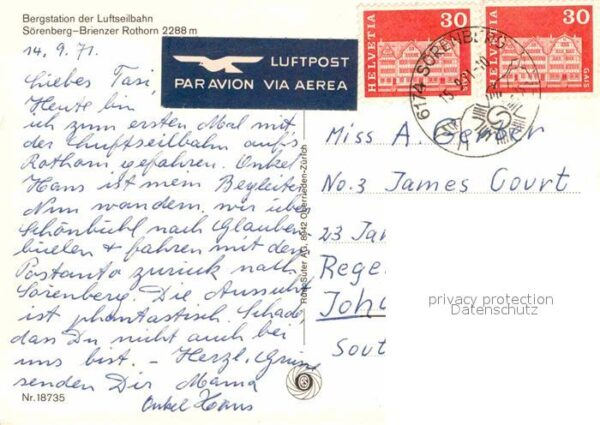 Bergstation der Luftseilbahn
Sörenberg–Brienzer Rothorn 2288 m
14. 9. 71.
Liebes Tasi,
Heute bin
ich zum ersten Mal mit
der Luftseilbahn auf's
Rothorn gefahren. Onkel
Hans ist mein Begleiter
Nun wandern wir über
Schönbühl nach Glauben-
büelen & fahren mit dem
Postauto zurück nach
Sörenberg. Die Aussicht
ist phantastisch. Schade
dass Du nicht auch bei
uns bist. – Herzl. Grüsse
senden Dir Mama
Onkel Hans
Nr. 18735
LUFTPOST
PAR AVION VIA AEREA
HELVETIA 30
HELVETIA 30 GAIS
6174 SÖRENBERG
Suter AG, 8942 Oberrieden-Zürich
Miss A. Gerber
No. 3 James Court
23 Jam
Rege
Joha
Sout
privacy protection
Datenschutz